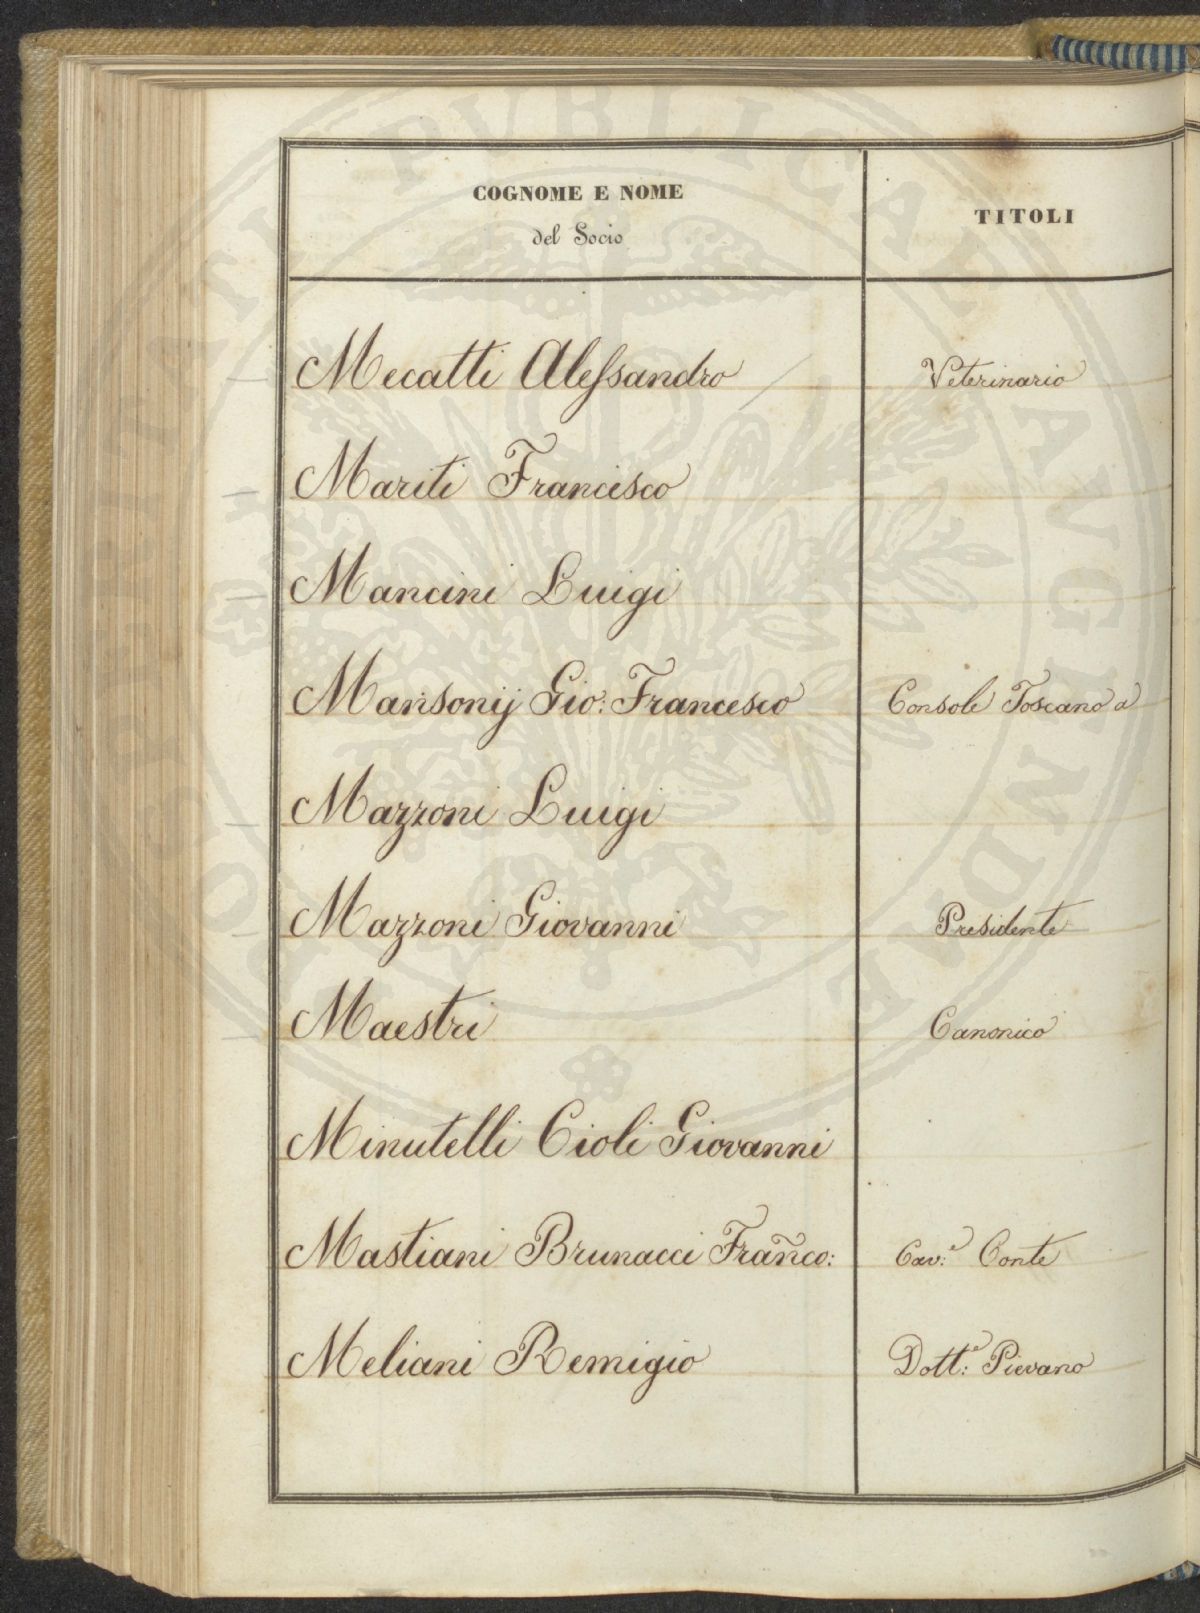 COGNOME E NOME
del Socio
TITOLI
Mecatti Alessandro Veterinario
Mariti Francisco
Mancini Luigi
Mansonij Gio: Francesco Console Toscano a
Mazzoni Luigi
Mazzoni Giovanni Presidente
Maestri Canonico
Minutelli Cioli Giovanni
Mastiani Brunacci Frañco: Cav:e Conte
Meliani Remigio Dott:e Pievano